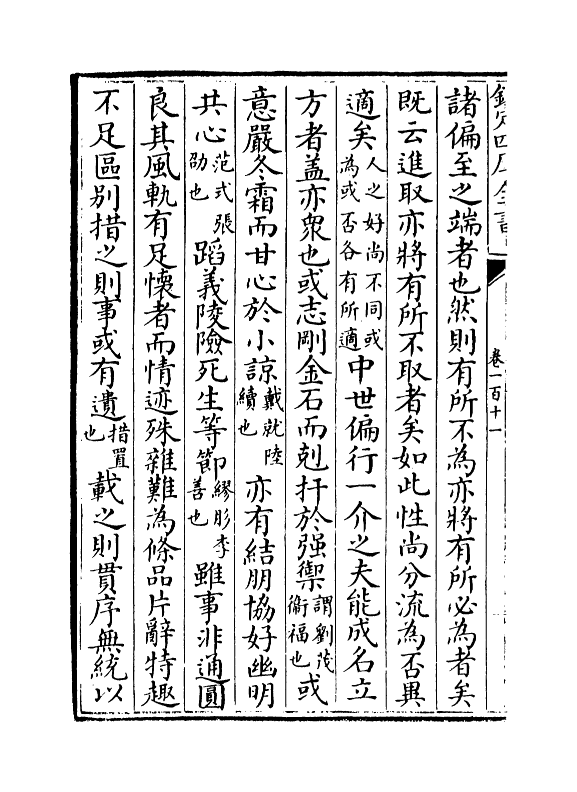 欽定四庫全書
卷一百十一
諸偏至之端者也然則有所不為亦將有所必為者矣
既云進取亦將有所不取者矣如此性尚分流為否異
適矣人之好尚不同或為或否各有所適中世偏行一介之夫能成名立
方者蓋亦衆也或志剛金石而剋扞於强禦謂劉茂衞福也或
意嚴冬霜而甘心於小諒戴就陸續也亦有結朋協好幽明
共心范式張劭也蹈義陵險死生等節繆肜李善也雖事非通圓
良其風軌有足懷者而情迹殊雜難為條品片辭特趣
不足區别措之則事或有遺措置也載之則貫序無統以